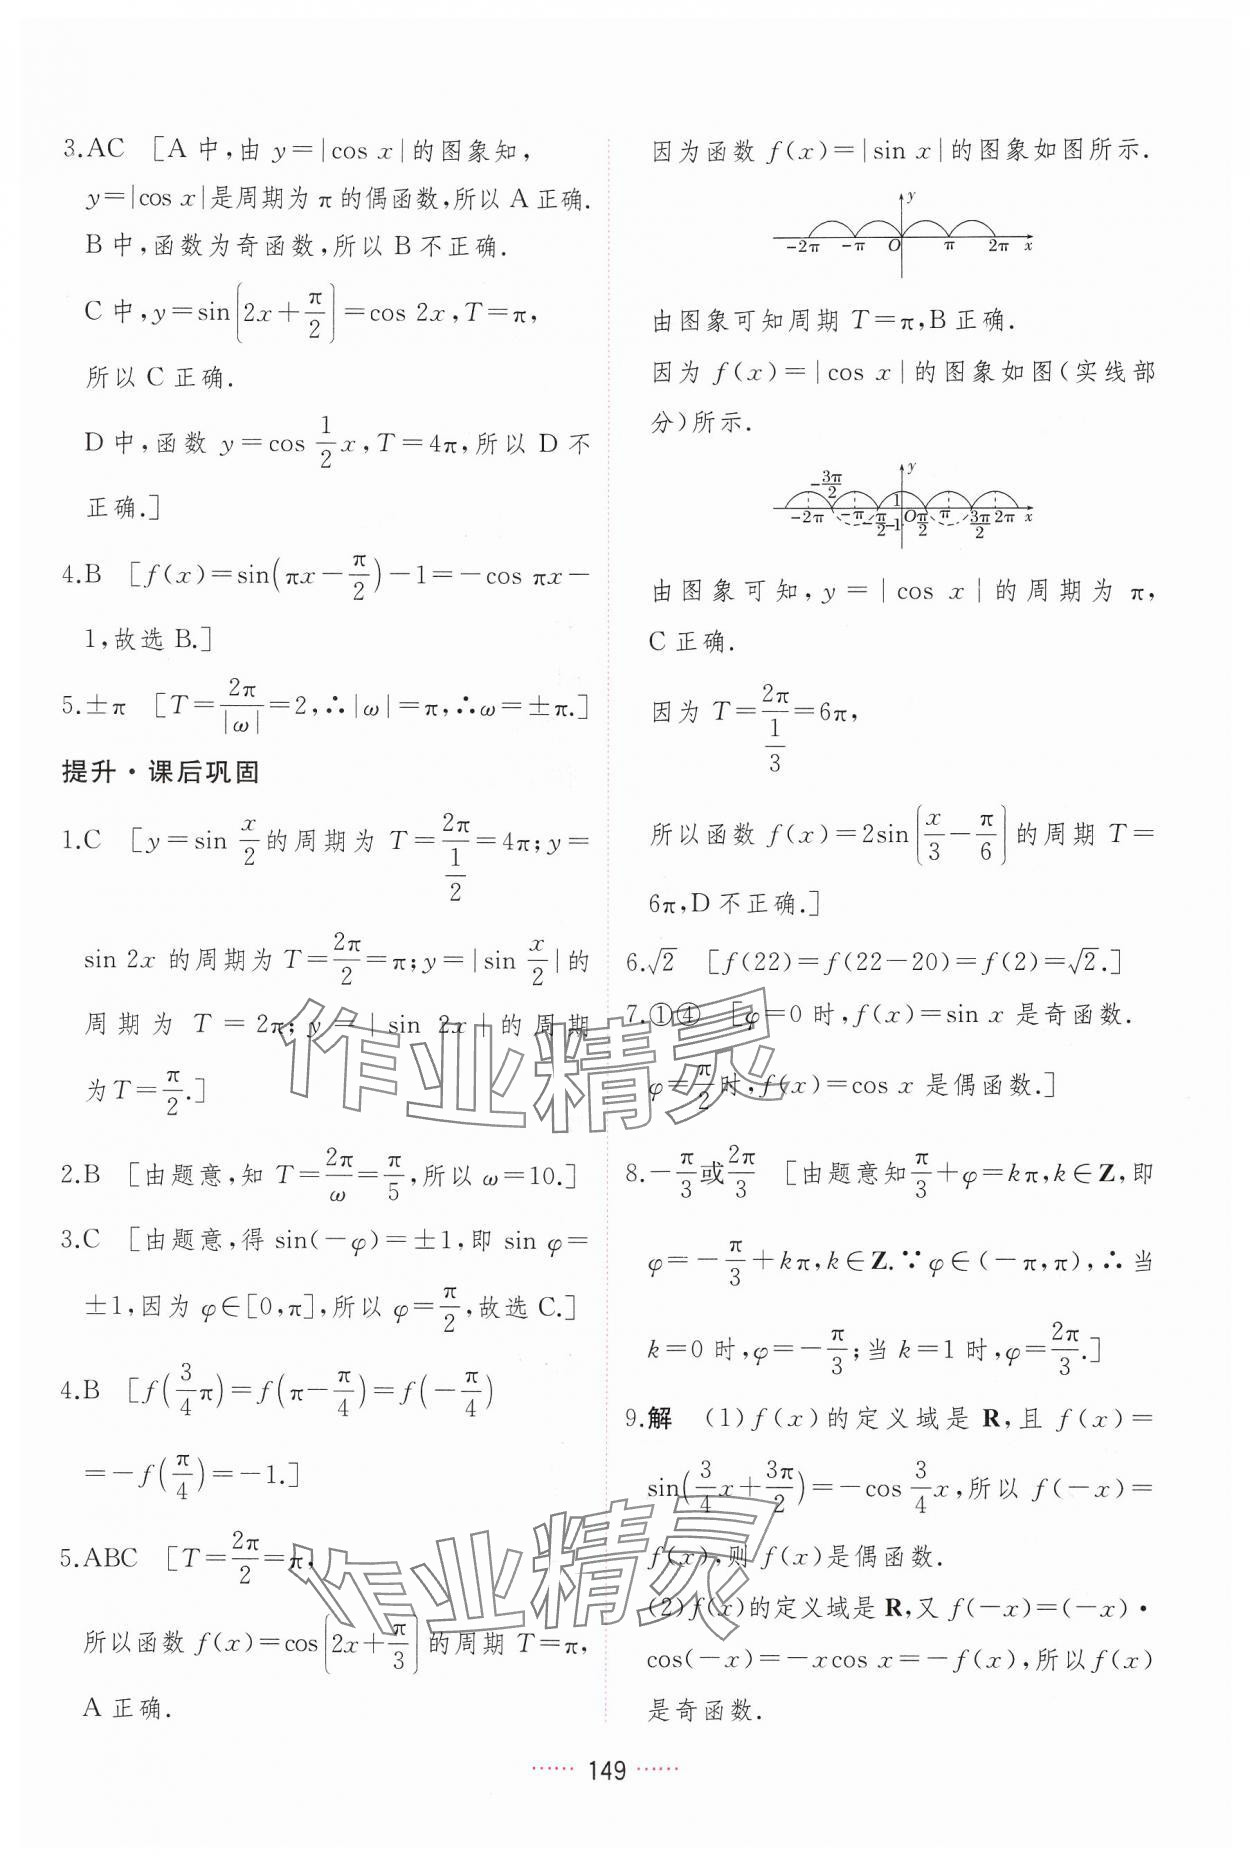 3.AC [A中,由 y=|cos x|的图象知,
y=|cos x|是周期为π的偶函数,所以A正确.
B中,函数为奇函数,所以B不正确.
C中,y=sin(2x+π/2)=cos 2x,T=π,
所以C正确.
D中,函数 y=cos 1/2 x,T=4π,所以D不
正确.]
4.B [f(x)=sin(πx-π/2)-1=-cos πx-
1,故选B.]
5.±π [T=2π/|ω|=2,∴|ω|=π,∴ω=±π.]
提升·课后巩固
1.C [y=sin x/2 的周期为 T=2π/(1/2)=4π;y=
sin 2x 的周期为 T=2π/2=π;y=|sin x/2|的
周期为 T=2π;y=|sin 2x|的周期
为T=π/2.]
2.B [由题意,知 T=2π/ω=π/5,所以 ω=10.]
3.C [由题意,得 sin(-φ)=±1,即 sin φ=
±1,因为 φ∈[0,π],所以 φ=π/2,故选C.]
4.B [f(3/4 π)=f(π-π/4)=f(-π/4)
=-f(π/4)=-1.]
5.ABC [T=2π/2=π,
所以函数 f(x)=cos(2x+π/3)的周期 T=π,
A正确.
因为函数 f(x)=|sin x|的图象如图所示.
y
-2π -π O π 2π x
由图象可知周期 T=π,B正确.
因为 f(x)=|cos x|的图象如图(实线部
分)所示.
y
-3π/2 1
-2π -π -π/2 -1 O π/2 π 3π/2 2π x
由图象可知,y=|cos x|的周期为 π,
C正确.
因为 T=2π/(1/3)=6π,
所以函数 f(x)=2sin(x/3-π/6)的周期 T=
6π,D不正确.]
6.√2 [f(22)=f(22-20)=f(2)=√2.]
7.①④ [φ=0时,f(x)=sin x 是奇函数.
φ=π/2时,f(x)=cos x 是偶函数.]
8.-π/3或2π/3 [由题意知π/3+φ=kπ,k∈Z,即
φ=-π/3+kπ,k∈Z.∵φ∈(-π,π),∴当
k=0时,φ=-π/3;当 k=1时,φ=2π/3.]
9.解 (1)f(x)的定义域是 R,且 f(x)=
sin(3/4 x+3π/2)=-cos 3/4 x,所以 f(-x)=
f(x),则 f(x)是偶函数.
(2)f(x)的定义域是 R,又 f(-x)=(-x)·
cos(-x)=-xcos x=-f(x),所以f(x)
是奇函数.
作业精灵
作业精灵
······ 149 ······